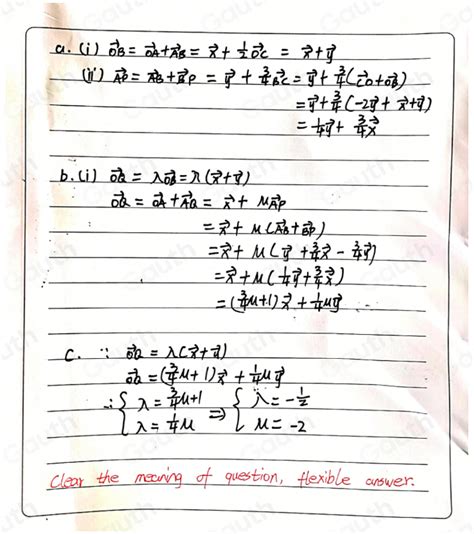 a. (i) →OB = →OA + →AB = →x + 1/2 →OC = →x + →y
(ii) →AP = →AB + →BP = →y + 3/4 →BC = →y + 3/4 (→CO + →OB)
= →y + 3/4 (-2→y + →x + →y)
= 1/4 →y + 3/4 →x
b. (i) →OQ = λ→OB = λ(→x + →y)
→OQ = →OA + →AQ = →x + μ→AP
= →x + μ(→AB + →BP)
= →x + μ(→y + 3/4 →x - 3/4 →y)
= →x + μ(1/4 →y + 3/4 →x)
= (3/4 μ + 1)→x + 1/4 μ→y
c. ∵ →OQ = λ(→x + →y)
→OQ = (3/4 μ + 1)→x + 1/4 μ→y
∴ { λ = 3/4 μ + 1 ⇒ { λ = -1/2
λ = 1/4 μ μ = -2
Clear the meaning of question, flexible answer.